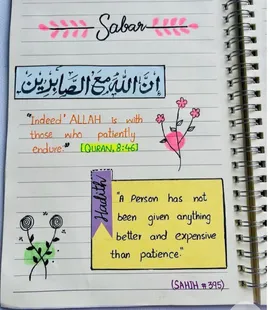 Sabar
إن الله مع الصابرين
"Indeed' ALLAH is with
those who patiently
endure." [QURAN, 8:46]
Hadith
"A Person has not
been given anything
better and expensive
than patience"
(SAHIH #395)